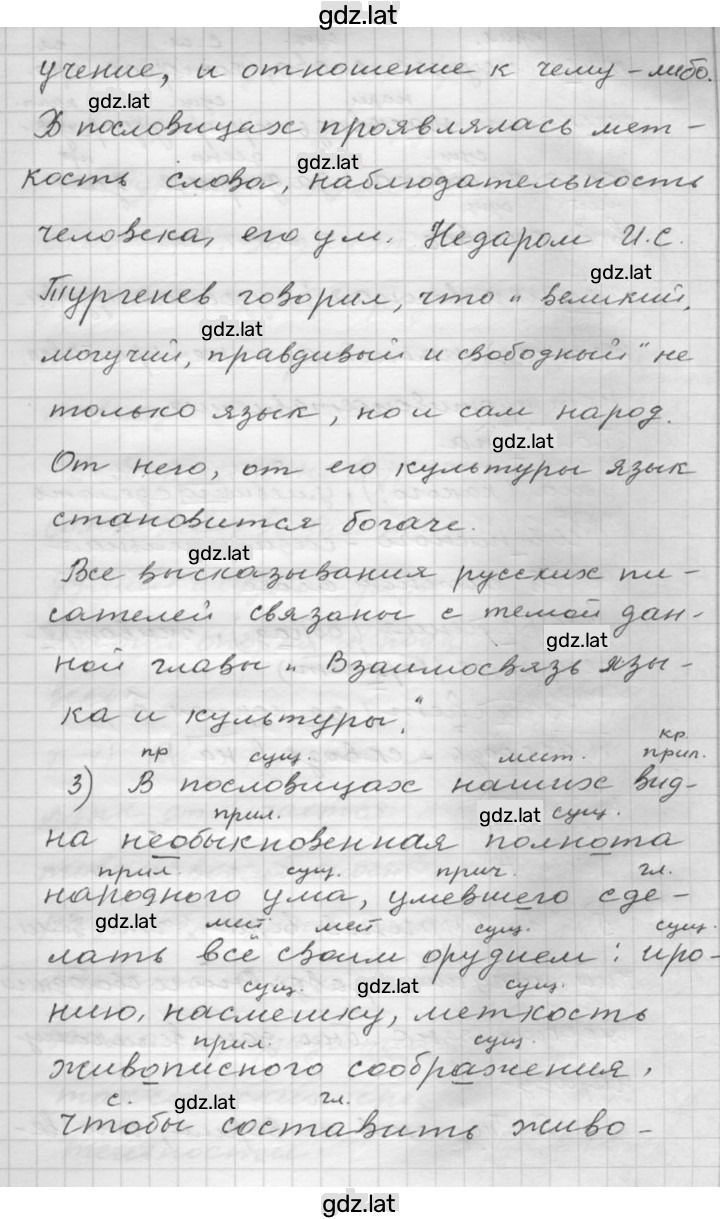 gdz.lat
учение, и отношение к чему-либо.
gdz.lat
В пословицах проявлялась мет-
gdz.lat
кость слова, наблюдательность
человека, его ум. Недаром И.С.
gdz.lat
Тургенев говорил, что „великий,
gdz.lat
могучий, правдивый и свободный" не
только язык, но и сам народ.
gdz.lat
От него, от его культуры язык
становится богаче.
gdz.lat
Все высказывания русских пи-
сателей связаны с темой дан-
gdz.lat
ной главы „Взаимосвязь язы-
ка и культуры."
пр сущ. мест. кр. прил.
3) В пословицах наших вид-
прил. gdz.lat сущ.
на необыкновенная полнота
прил. сущ. прич. гл.
народного ума, умевшего сде-
gdz.lat мест мест сущ. сущ.
лать всё своим орудием: иро-
сущ. gdz.lat сущ.
нию, насмешку, меткость
прил. сущ.
живописного соображения,
с. gdz.lat гл.
чтобы составить живо-
gdz.lat